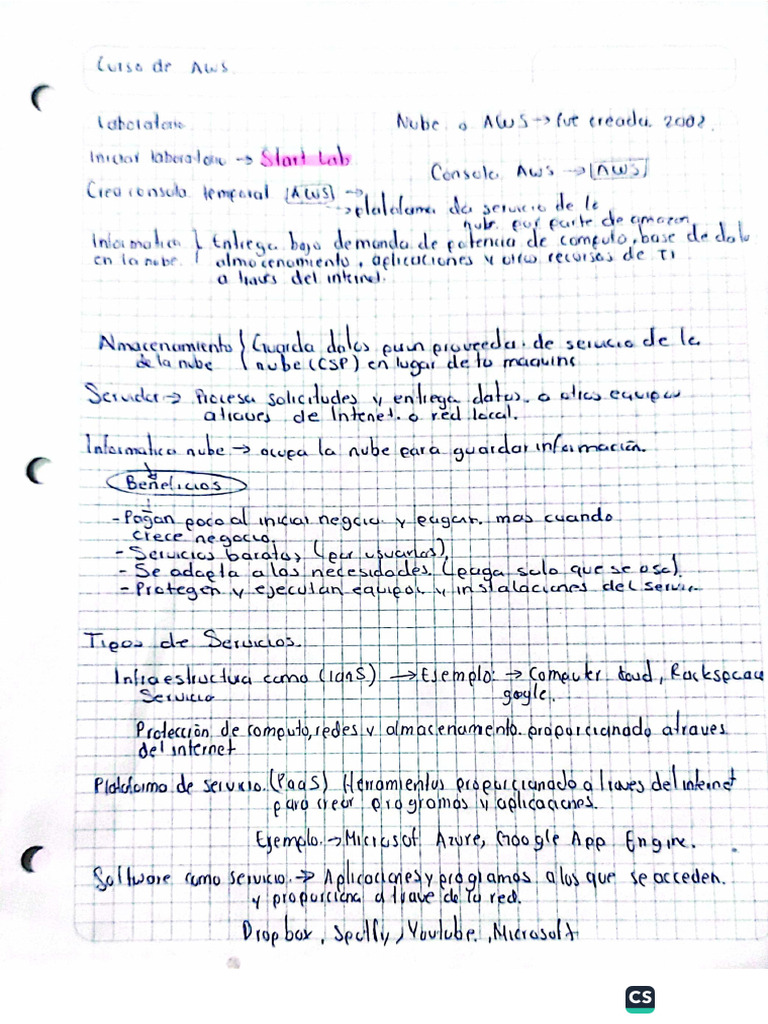 Curso de AWS.
Laboratorio
Nube o AWS → fue creada 2002.
Iniciar laboratorio → Start Lab
Consola Aws → [AWS]
Crea consola temporal [AWS] →
→ plataforma de servicio de la
nube por parte de amazon
Informatica } Entrega bajo demanda de potencia de computo, base de dato
en la nube. almacenamiento, aplicaciones y otros recursos de TI
a traves del internet.
Almacenamiento { Guarda datos proveedor de servicio de la
de la nube nube (CSP) en lugar de tu maquina
Servidor → Procesa solicitudes y entrega datos. o otros equipos
atraves de Internet. o red local.
Informatica nube → ocupa la nube para guardar información.
Beneficios
- Pagan poco al iniciar negocio y pagan. mas cuando
crece negocio.
- Servicios baratos (por usuarios).
- Se adapta a las necesidades. (paga solo que se usa).
- Protegen y ejecutan equipos y instalaciones del servic
Tipos de Servicios.
Infraestructura como (IaaS) → Ejemplo: → Computer Rackspace
Servicio google.
Protección de computo, redes y almacenamento. proporcionado atraves
del internet
Plataforma de servicio. (PaaS) Herramientas proporcionado a traves del internet
para crear programas y aplicaciones.
Ejemplo. → Microsof Azure, Google App Engine.
Software como servicio. → Aplicaciones y programas a los que se acceden.
y proporciona a trave de la red.
Dropbox, Spotfy, Youtube, Microsoft
CS